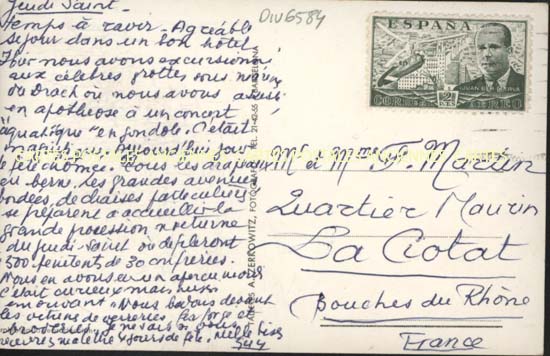 Jeudi Saint.
temps à ravir. Agréable
séjour dans un bon hôtel
Hier nous avons excursionné
aux célèbres grottes sous
du Drach où nous avons
en apothéose à un concert
"aquatique" en gondole. C'était
magnifique. Aujourd'hui jour
de fête chômée. Tous les drapeaux
en berne. Les grandes avenues
bondées, de chaises particulières
se préparent à accueillir la
grande procession nocturne
du jeudi-Saint où défileront
300 pénitents de 30 confréries.
Nous en avons eu un aperçu
C'était curieux mais
émouvant. Nous
les vitrines de verreries, fer forgé et
broderies. Je ne sais si vous
recevrez ma lettre jours de fête. Mille bises
DIV6584
ESPAÑA
JUAN DE LA CIERVA
CORREO AEREO
A. ZERKOWITZ, FOTOGRAFO TEL. 21-42-55 BARCELONA
Mr et Mme F. Martin
Quartier Maurin
La Ciotat
Bouches du Rhône
France